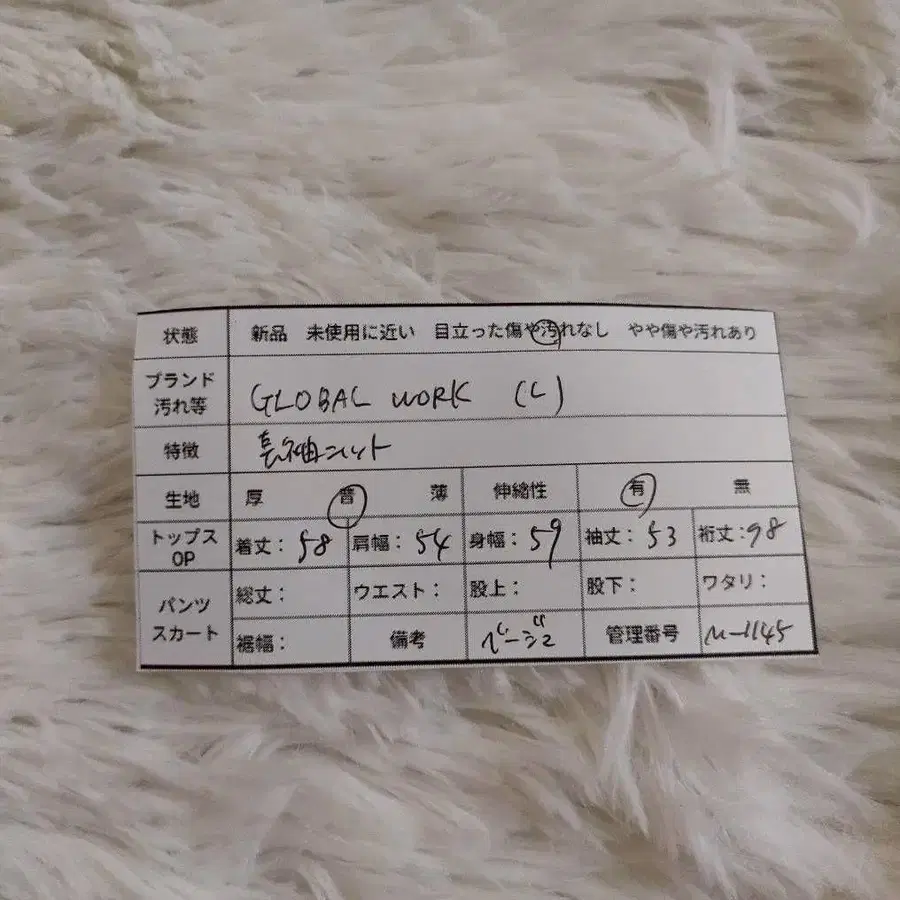 状態 新品 未使用に近い 目立った傷や汚れなし やや傷や汚れあり
ブランド
汚れ等 GLOBAL WORK (L)
特徴 長袖ニット
生地 厚 普 薄 伸縮性 有 無
トップス
OP 着丈: 58 肩幅: 54 身幅: 59 袖丈: 53 裄丈: 98
パンツ
スカート 総丈: ウエスト: 股上: 股下: ワタリ:
裾幅: 備考 ベージュ 管理番号 M-1145